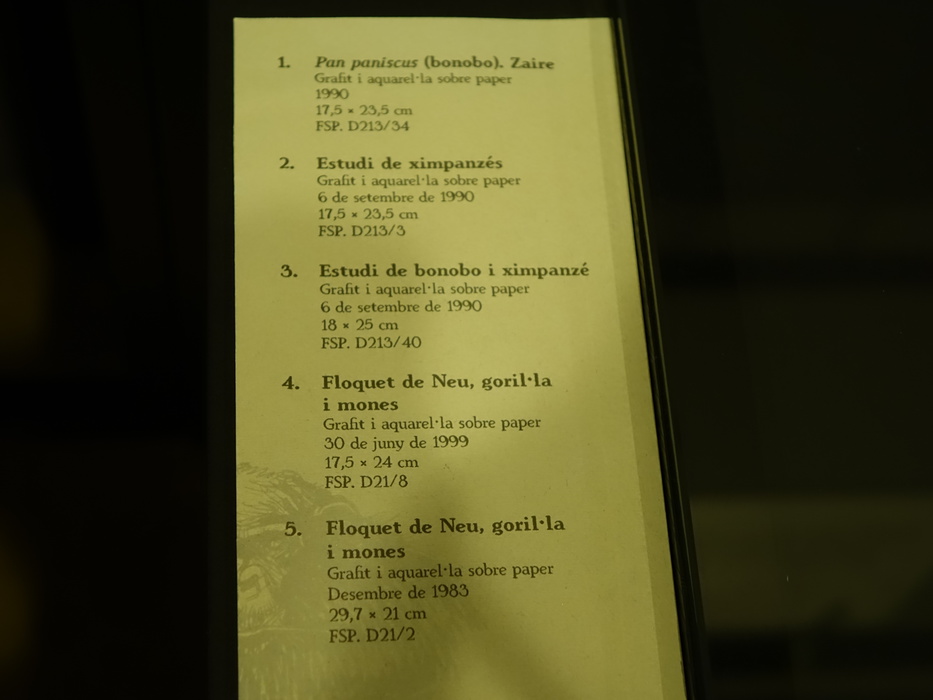 1. Pan paniscus (bonobo). Zaire
Grafit i aquarel·la sobre paper
1990
17,5 × 23,5 cm
FSP. D213/34
2. Estudi de ximpanzés
Grafit i aquarel·la sobre paper
6 de setembre de 1990
17,5 × 23,5 cm
FSP. D213/3
3. Estudi de bonobo i ximpanzé
Grafit i aquarel·la sobre paper
6 de setembre de 1990
18 × 25 cm
FSP. D213/40
4. Floquet de Neu, goril·la
i mones
Grafit i aquarel·la sobre paper
30 de juny de 1999
17,5 × 24 cm
FSP. D21/8
5. Floquet de Neu, goril·la
i mones
Grafit i aquarel·la sobre paper
Desembre de 1983
29,7 × 21 cm
FSP. D21/2